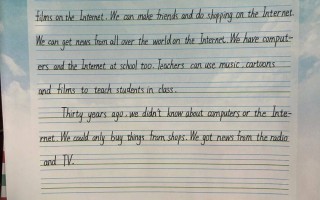 films on the Internet. We can make friends and do shopping on the Internet.
We can get news from all over the world on the Internet. We have comput-
ers and the Internet at school too. Teachers can use music, cartoons
and films to teach students in class.
Thirty years ago, we didn't know about computers or the Inte-
rnet. We could only buy things from shops. We got news from the radio
and TV.